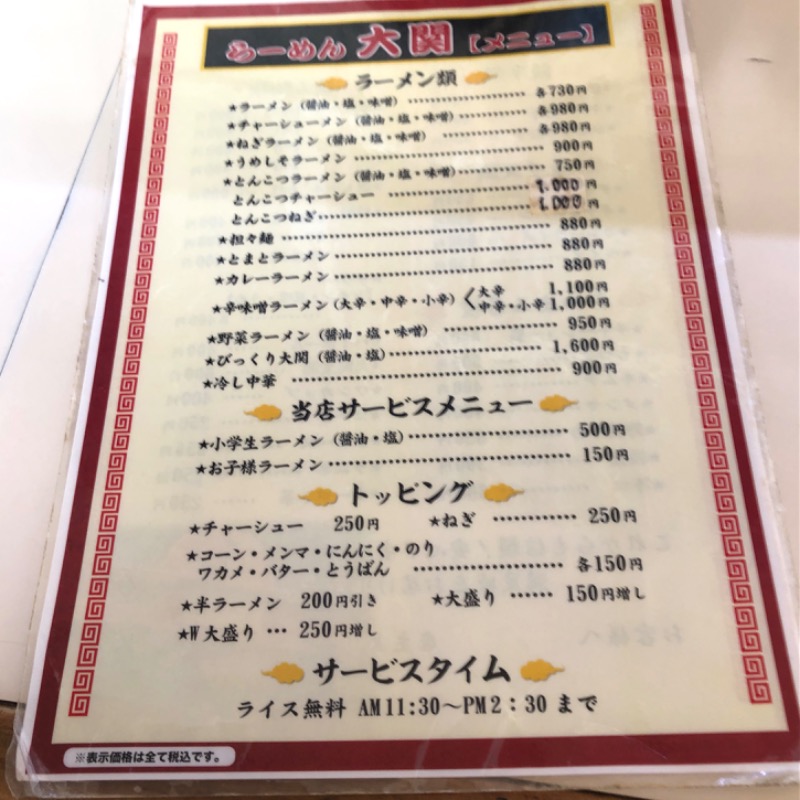 らーめん 大関 【メニュー】
ラーメン類
★ラーメン（醤油・塩・味噌） ………… 各730円
★チャーシューメン（醤油・塩・味噌） ………… 各980円
★ねぎラーメン（醤油・塩・味噌） ………… 各980円
★うめしそラーメン ………… 900円
★とんこつラーメン（醤油・塩・味噌） ………… 750円
とんこつチャーシュー ………… 1,000円
とんこつねぎ ………… 1,000円
★担々麺 ………… 880円
★とまとラーメン ………… 880円
★カレーラーメン ………… 880円
★辛味噌ラーメン（大辛・中辛・小辛）〈 大辛 1,100円
中辛・小辛 1,000円
★野菜ラーメン（醤油・塩・味噌） ………… 950円
★びっくり大関（醤油・塩） ………… 1,600円
★冷し中華 ………… 900円
当店サービスメニュー
★小学生ラーメン（醤油・塩） ………… 500円
★お子様ラーメン ………… 150円
トッピング
★チャーシュー 250円 ★ねぎ ………… 250円
★コーン・メンマ・にんにく・のり
ワカメ・バター・とうばん ………… 各150円
★半ラーメン 200円引き ★大盛り …… 150円増し
★W大盛り … 250円増し
サービスタイム
ライス無料 AM11:30〜PM2：30 まで
※表示価格は全て税込です。